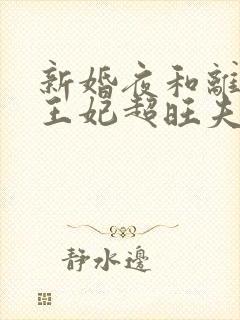 新婚夜和離
王妃超旺夫
靜水邊